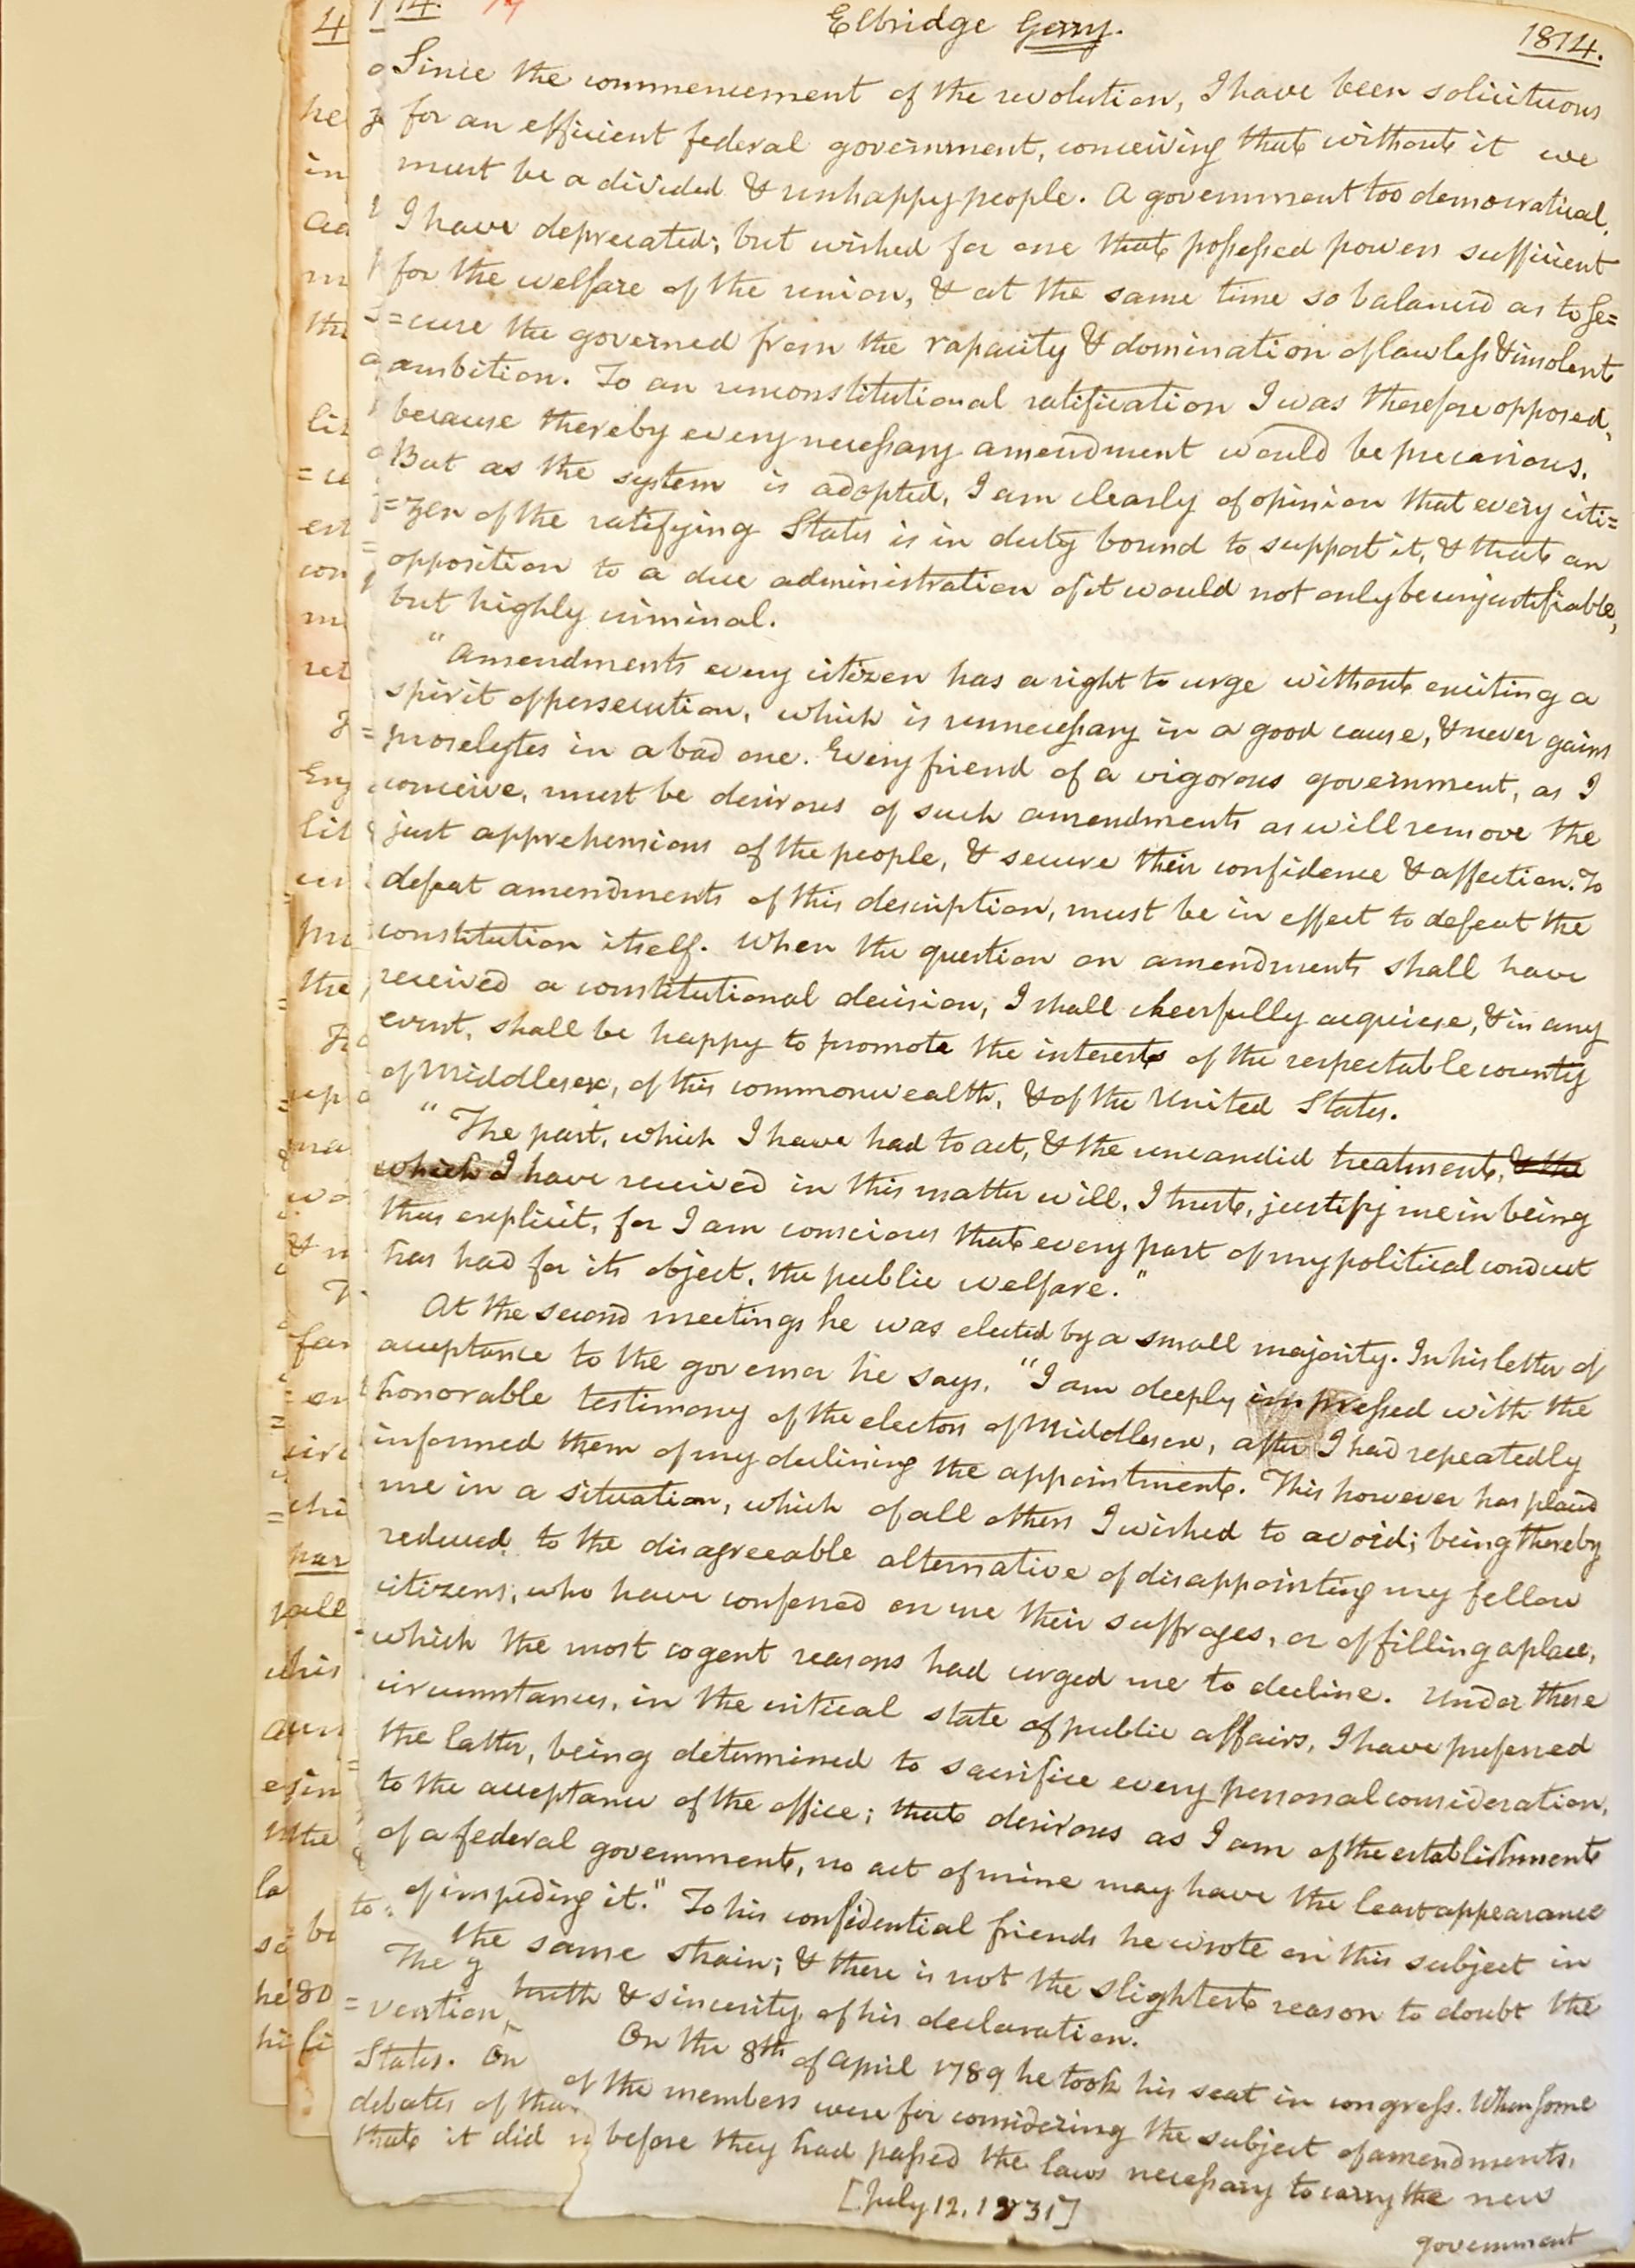 14.
Elbridge Gerry.
1814.
Since the commencement of the revolution, I have been solicituous
for an efficient federal government, conceiving that without it we
must be a divided & unhappy people. A government too democratical,
I have deprecated; but wished for one that possessed powers sufficient
for the welfare of the union, & at the same time so balanced as to se=
=cure the governed from the rapacity & domination of lawless & insolent
ambition. To an unconstitutional ratification I was therefore opposed,
because thereby every necessary amendment would be precarious.
But as the system is adopted, I am clearly of opinion that every citi=
=zen of the ratifying States is in duty bound to support it, & that an
opposition to a due administration of it would not only be unjustifiable,
but highly criminal.
"Amendments every citizen has a right to urge without exciting a
spirit of persecution, which is unnecessary in a good cause, & never gains
proselytes in a bad one. Every friend of a vigorous government, as I
conceive, must be desirous of such amendments as will remove the
just apprehensions of the people, & secure their confidence & affection. To
defeat amendments of this description, must be in effect to defeat the
constitution itself. When the question on amendments shall have
received a constitutional decision, I shall cheerfully acquiese, & in any
event, shall be happy to promote the interests of the respectable county
of Middlesex, of this commonwealth, & of the United States.
"The part, which I have had to act, & the uncandid treatment, & the
which I have received in this matter will, I trust, justify me in being
thus explicit, for I am conscious that every part of my political conduct
has had for its object, the public welfare."
At the second meetings he was elected by a small majority. In his letter of
acceptance to the governor he says, "I am deeply impressed with the
honorable testimony of the electors of Middlesex, after I had repeatedly
informed them of my declining the appointment. This however has placed
me in a situation, which of all others I wished to avoid; being thereby
reduced to the disagreeable alternative of disappointing my fellow
citizens, who have conferred on me their suffrages, or of filling a place,
which the most cogent reasons had urged me to decline. Under these
circumstances, in the critical state of public affairs, I have preferred
the latter, being determined to sacrifice every personal consideration,
to the acceptance of the office; that desirous as I am of the establishment
of a federal government, no act of mine may have the least appearance
of impeding it." To his confidential friends he wrote on this subject in
the same strain; & there is not the slightest reason to doubt the
truth & sincerity of his declaration.
On the 8th of April 1789 he took his seat in congress. When some
of the members were for considering the subject of amendments,
before they had passed the laws necessary to carry the new
[July 12, 1831]
government
The
=vention,
States. On
debates of
that it did